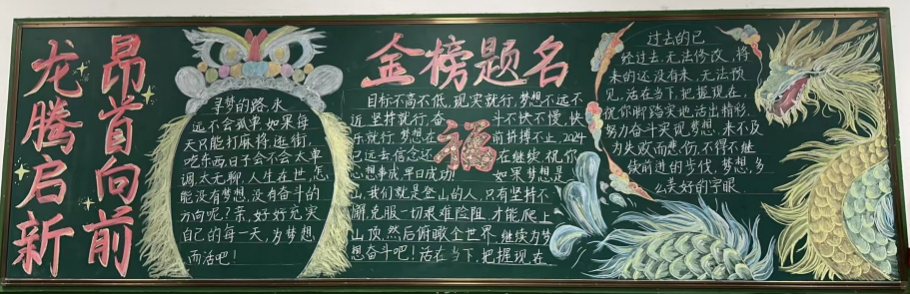 龙腾启新
昂首向前
寻梦的路,永
远不会孤单如果每
天只能打麻将,逛街,
吃东西,日子会不会太单
调,太无聊,人生在世,怎
能没有梦想,没有奋斗的
方向呢?亲,好好充实
自己的每一天,为梦想
而活吧!
金榜题名
目标不高不低,现实就行,梦想不远不
近坚持就行,奋斗不快不慢,快
乐就行梦想在前拼搏不止,2024
已远去信念还在继续,祝你
心想事成,平日成功!如果梦想是
山,我们就是登山的人,只有坚持不
懈,克服一切艰难险阻才能爬上
山顶,然后俯瞰全世界继续为梦
想奋斗吧!活在当下,把握现在
福
过去的已
经过去,无法修改,将
来的还没有来,无法预
见,活在当下,把握现在,
祝你脚踏实地,活出精彩
努力奋斗实现梦想,未不及
为失败而悲伤,不得不继
续前进的步伐,梦想,多
么美好的字眼